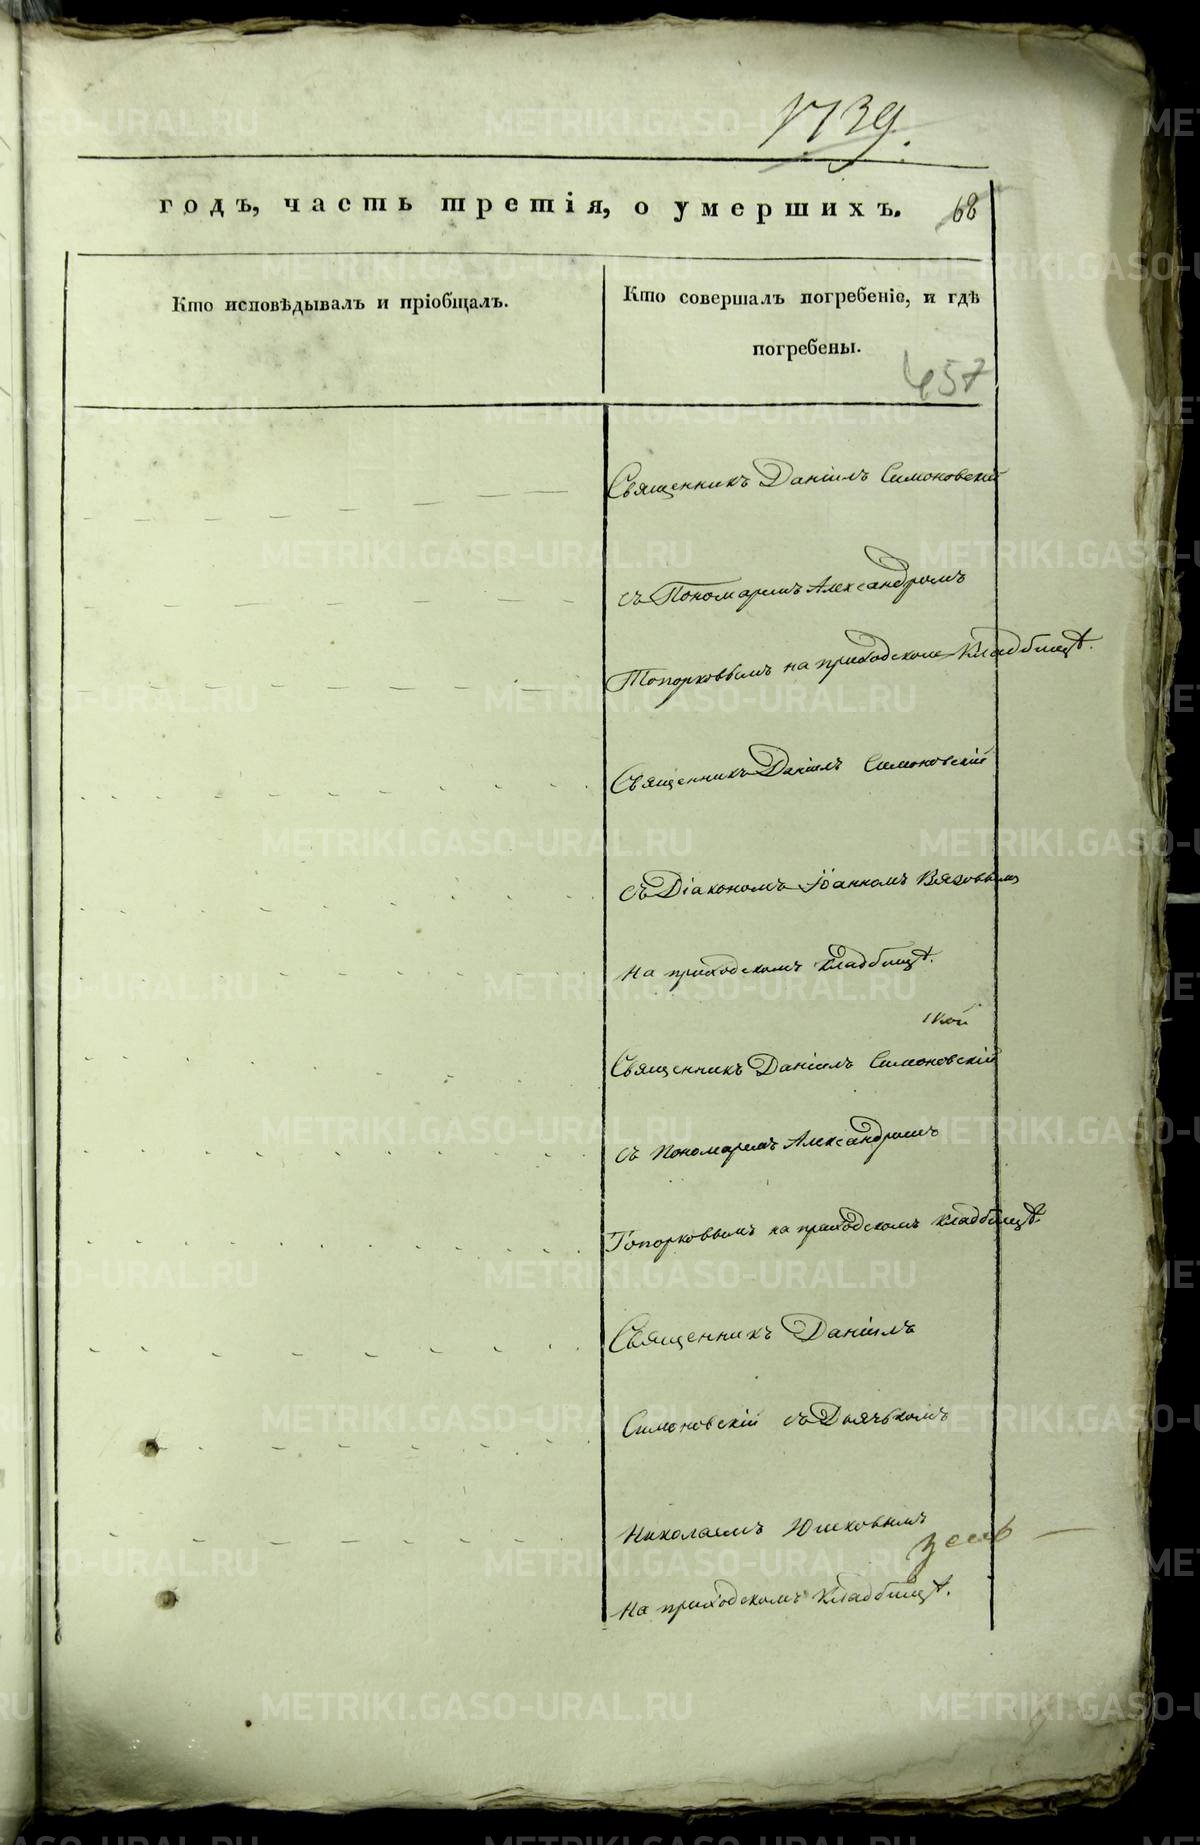 1739.
годъ, часть третія, о умершихъ. 68
Кто исповѣдывалъ и пріобщалъ.
Кто совершалъ погребеніе, и гдѣ
погребены.
457
Священникъ Даніилъ Симоновскій
съ Пономаремъ Александромъ
Топорковымъ на приходскомъ Кладбищѣ.
Священникъ Даніилъ Симоновскій
съ Діакономъ Іоанномъ Вяховымъ
на приходскомъ Кладбищѣ.
Священникъ Даніилъ Симоновскій
съ Пономаремъ Александромъ
Топорковымъ на приходскомъ кладбищѣ.
Священникъ Даніилъ
Симоновскій съ Дьячькомъ
Николаемъ Юшковымъ
на приходскомъ Кладбищѣ.
METRIKI.GASO-URAL.RU